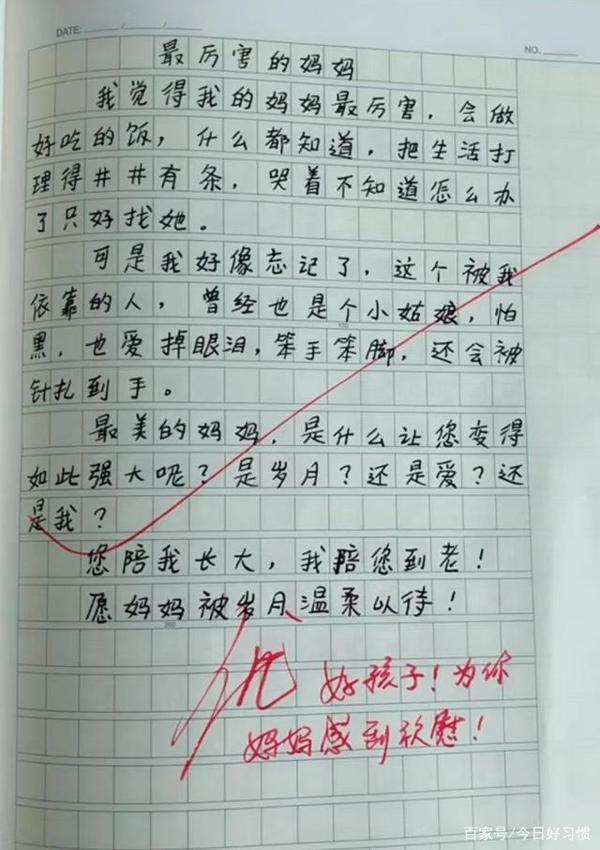 DATE: / /
NO.
最厉害的妈妈
我觉得我的妈妈最厉害，会做
好吃的饭，什么都知道，把生活打
理得井井有条，哭着不知道怎么办
了只好找她。
可是我好像忘记了，这个被我
依靠的人，曾经也是个小姑娘，怕
黑，也爱掉眼泪，笨手笨脚，还会被
针扎到手。
最美的妈妈，是什么让您变得
如此强大呢？是岁月？还是爱？还
是我？
您陪我长大，我陪您到老！
愿妈妈被岁月温柔以待！
优
好孩子！为你
妈妈感到欣慰！
百家号/今日好习惯